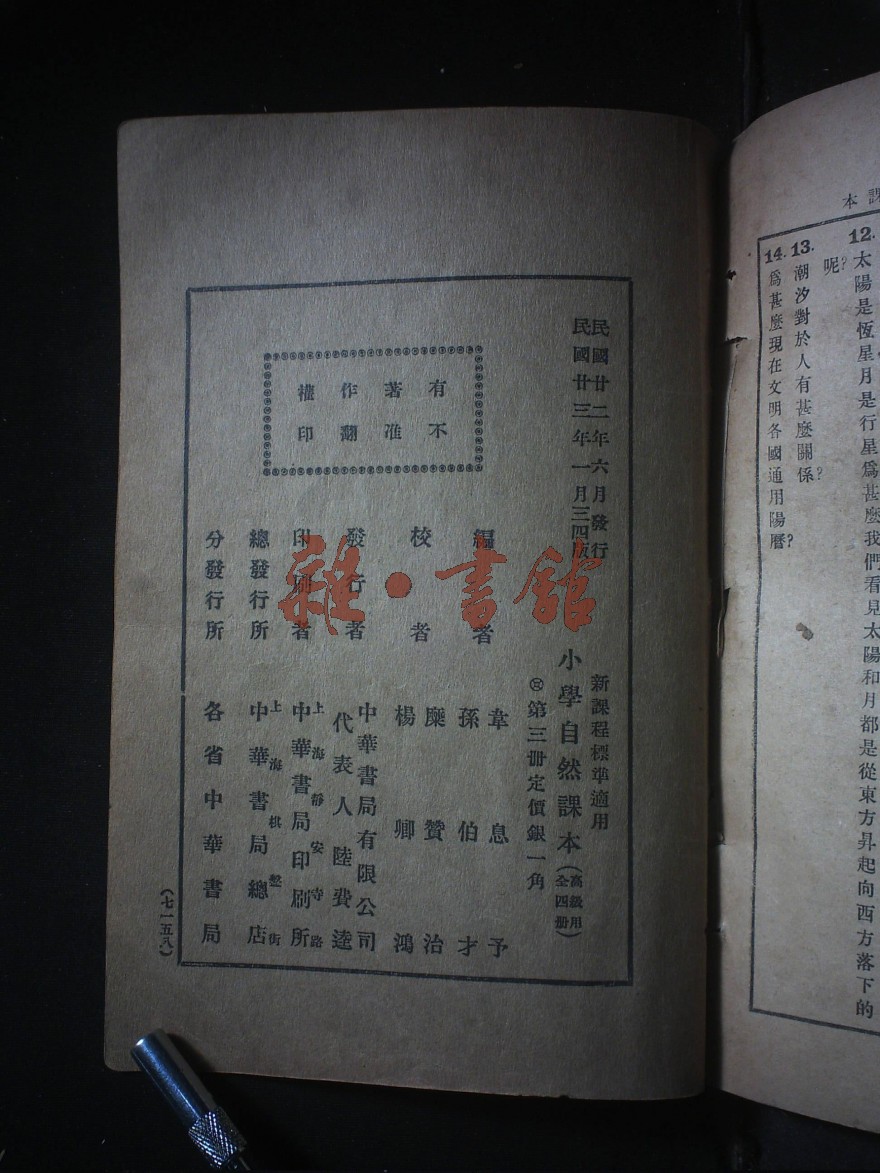 課本
12. 太陽是恆星月是行星爲甚麼我們看見太陽和月都是從東方昇起向西方落下的
呢?
13. 潮汐對於人有甚麼關係?
14. 爲甚麼現在文明各國通用陽曆?
民國廿二年六月發行
民國廿三年一月三四版
新課程標準適用
小學自然課本(高級用全四册)
第三册定價銀一角
有著作權
不准翻印
編者
韋息予
孫伯才
校者
糜贊治
楊卿鴻
發行者
中華書局有限公司
代表人陸費逵
印刷者
上海靜安寺路
中華書局印刷所
總發行所
上海棋盤街
中華書局總店
分發行所
各省中華書局
(七一五八)
雜·書館